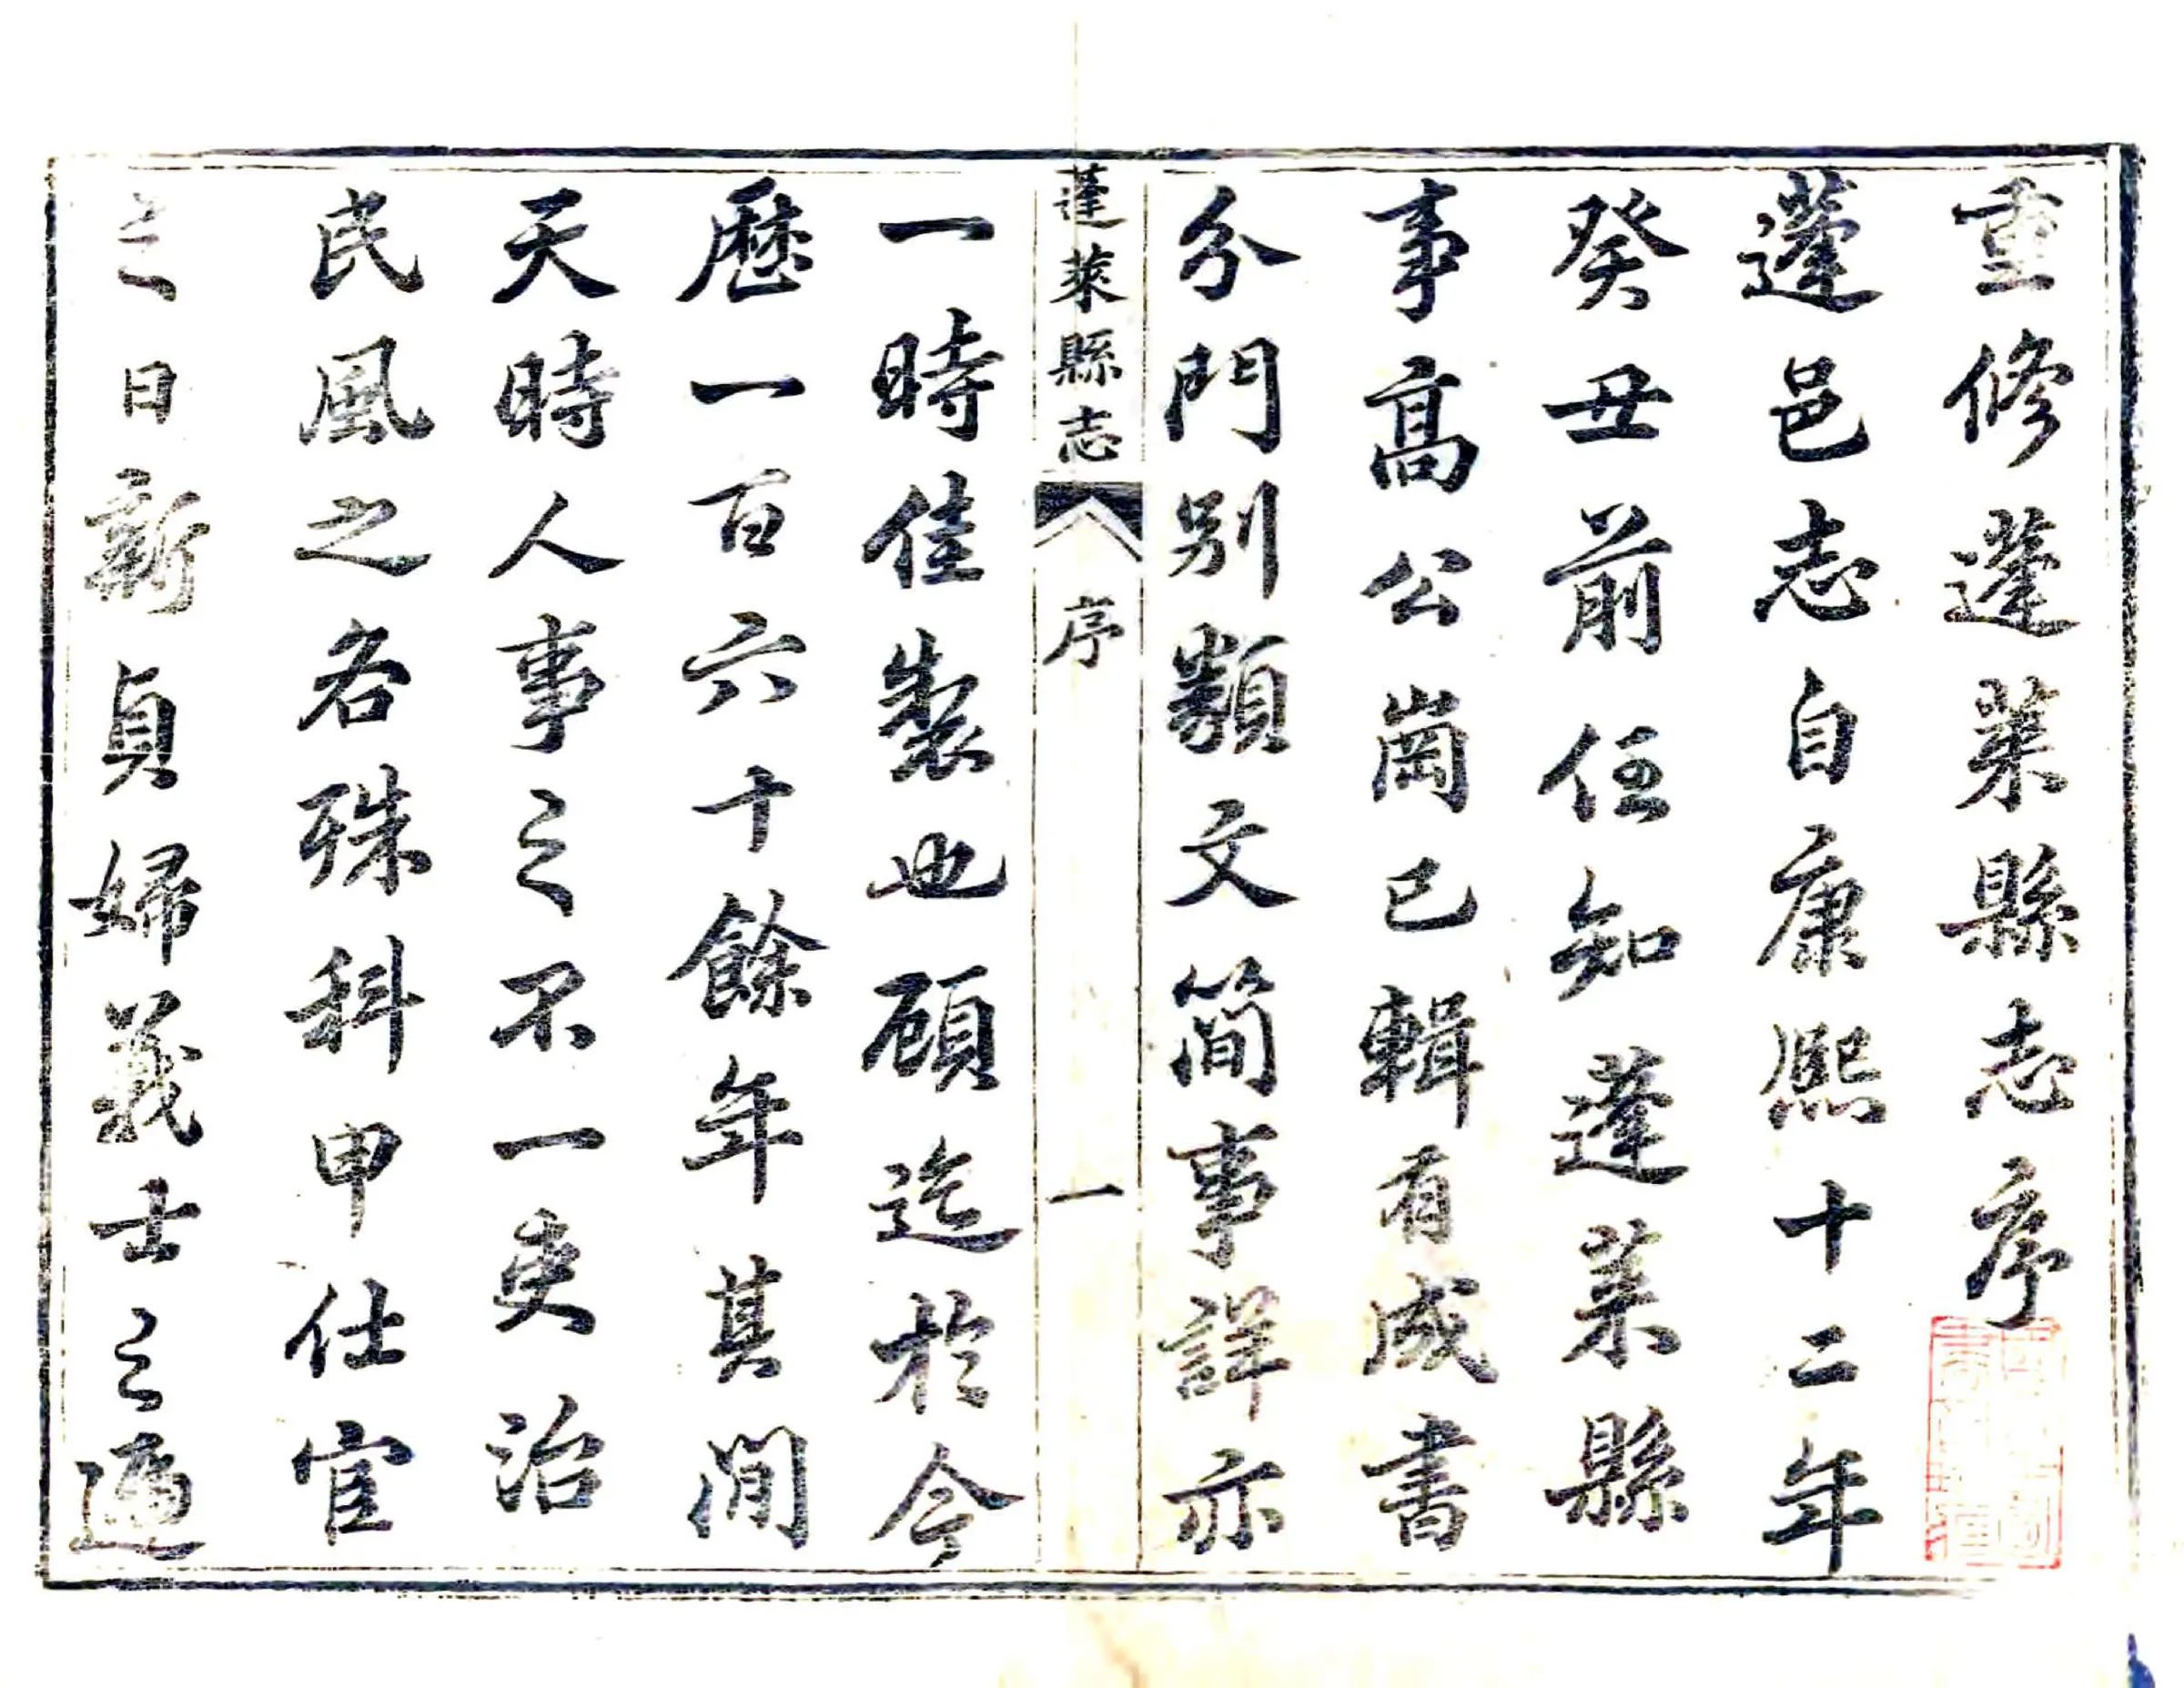 重修蓬萊縣志序
蓬邑志自康熙十二年
癸丑前任知蓬萊縣
事高公崗已輯有成書
分門別類文簡事詳亦
蓬萊縣志
序
一
一時佳製也顧迄於今
歷一百六十餘年其間
天時人事之不一吏治
民風之各殊科甲仕宦
之日新貞婦義士之遞